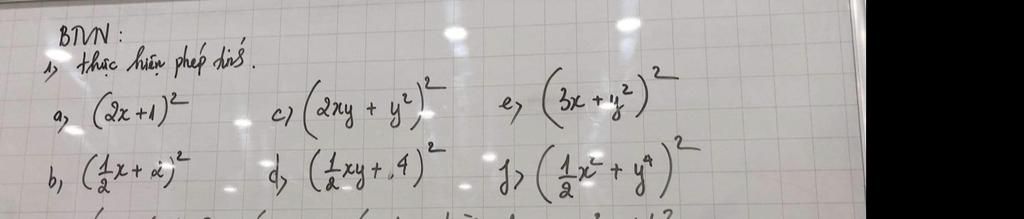 BTVN :
1, thực hiện phép tính.
a, (2x+1)² c) (2xy + y²)² e, (3x + y²)²
b, (1/2x + 2)² d, (1/2xy + 4)² f) (1/2x² + y⁴)²